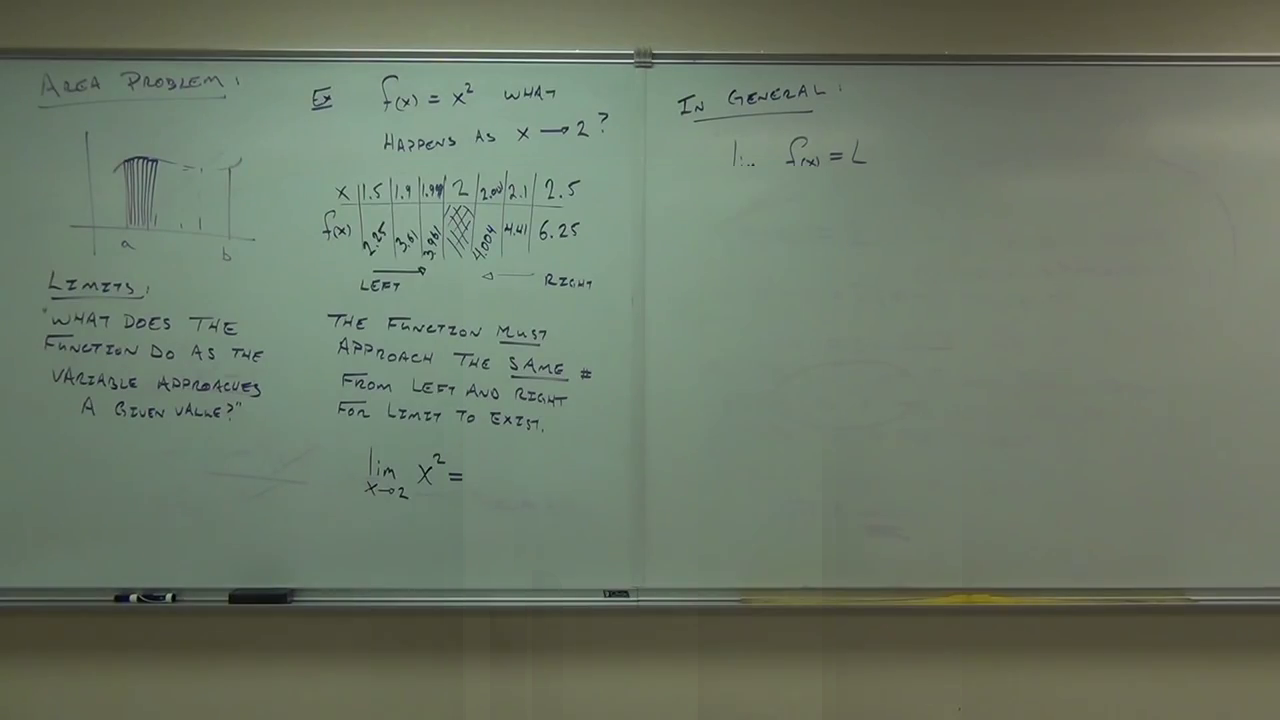 AREA PROBLEM:
a
b
LIMITS:
"WHAT DOES THE
FUNCTION DO AS THE
VARIABLE APPROACHES
A GIVEN VALUE?"
Ex f(x) = x² WHAT
HAPPENS AS X → 2?
X 1.5 1.9 1.99 2 2.001 2.1 2.5
f(x) 2.25 3.61 3.961 4.004 4.41 6.25
LEFT → ← RIGHT
THE FUNCTION MUST
APPROACH THE SAME #
FROM LEFT AND RIGHT
FOR LIMIT TO EXIST.
lim X² =
X→2
IN GENERAL:
f(x) = L